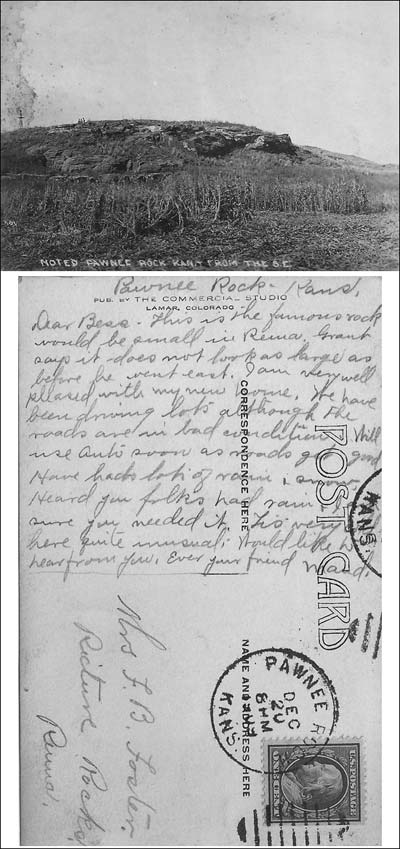 NOTED PAWNEE ROCK KAN. FROM THE S.E.
Pawnee Rock - Kans.
PUB. BY THE COMMERCIAL STUDIO
LAMAR, COLORADO
Dear Bess - This is the famous rock
would be small in Penna. Grant
says it does not look as large as
before he went east. I am very well
pleased with my new home. We have
been driving lots although the
roads are in bad condition. Will
use Auto soon as roads get good
Have had lots of rain & snow.
Heard you folks had rain
sure you needed it. 'Tis very
here quite unusual. Would like to
hear from you. Ever your friend Maud.
CORRESPONDENCE HERE
POST CARD
KANS.
NAME AND ADDRESS HERE
PAWNEE
DEC
20
8 AM
KANS.
U.S. POSTAGE
Mrs F. B. Foster
Picture Rocks
Penna.